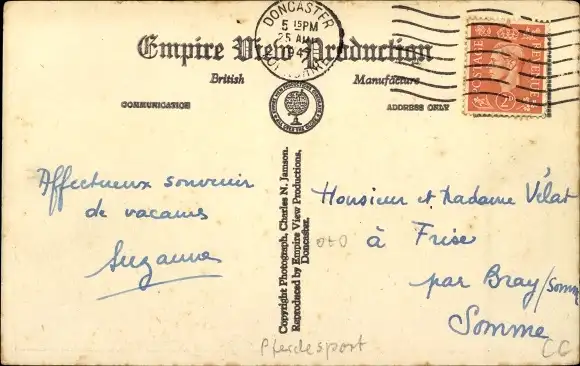 DONCASTER
5 15PM
25 AUG
194
Empire View Production
British Manufacture
COMMUNICATION
ADDRESS ONLY
POSTAGE
REVENUE
2D
Affectueux souvenir
de vacances
Suzanne
Copyright Photograph, Charles N. Jamson.
Reproduced by Empire View Productions,
Doncaster.
Monsieur et Madame Vélat
à Frise
par Bray/Somme
Somme
Pferdesport
CG